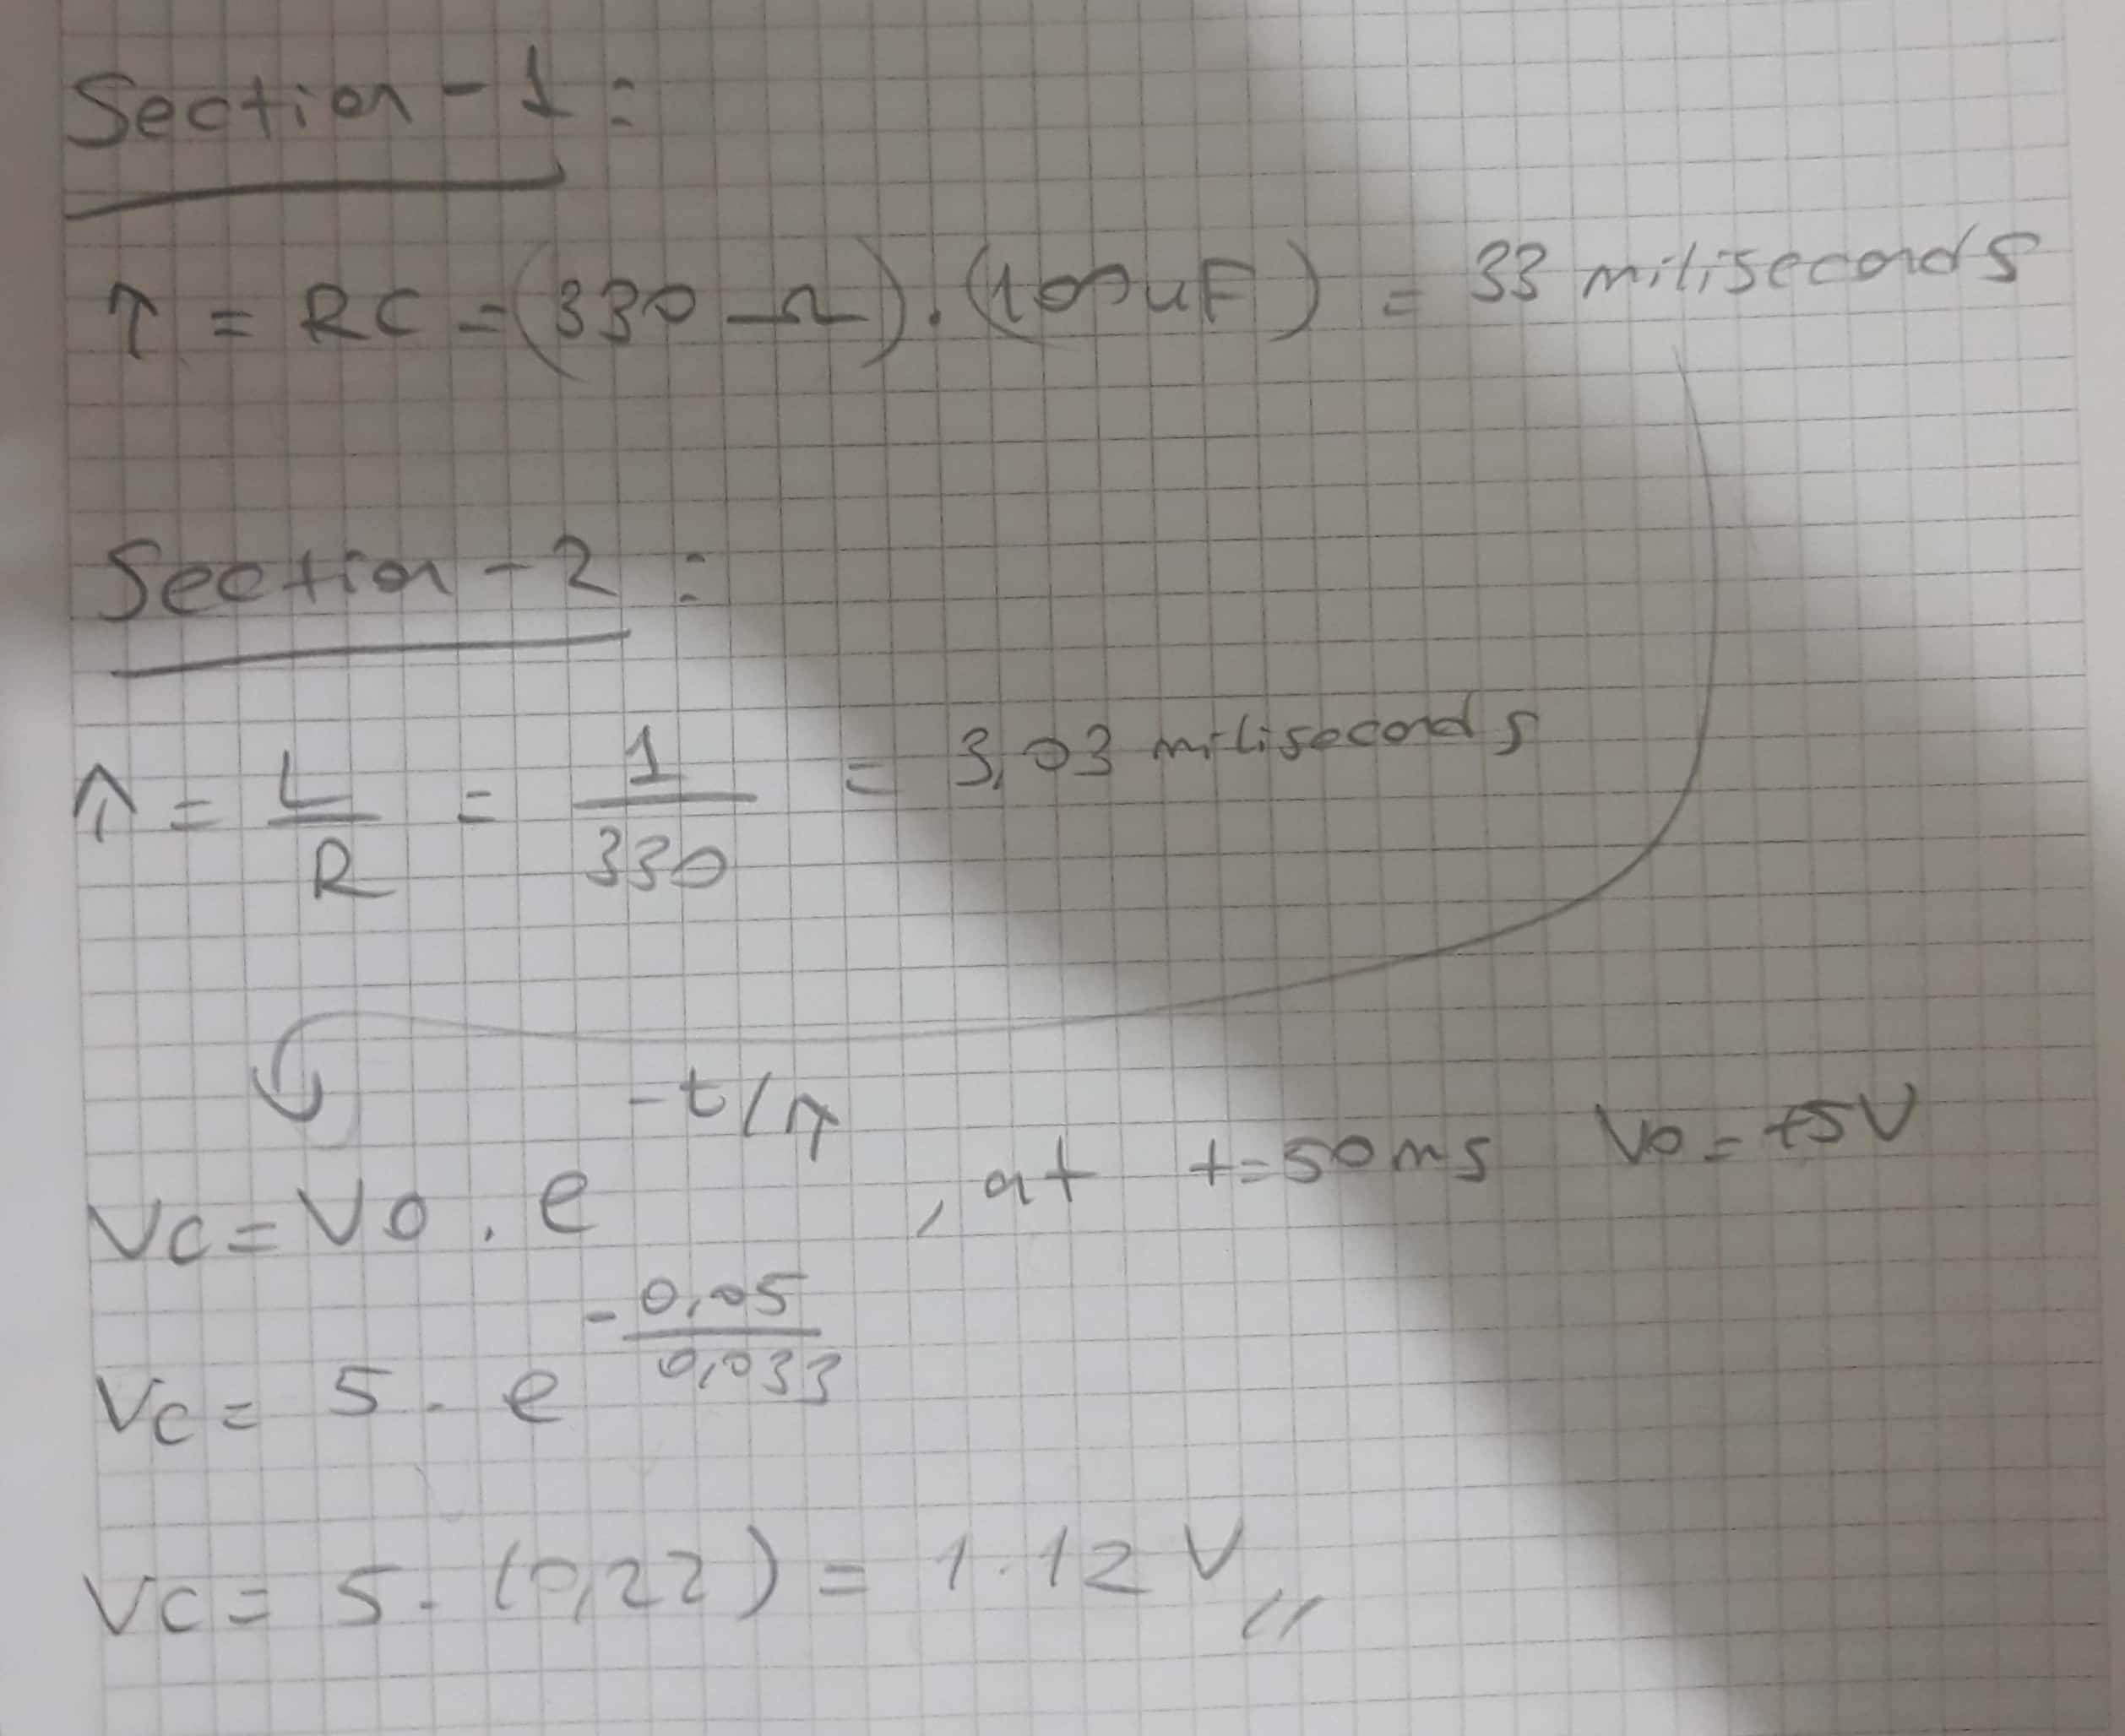 Section-1:
τ = RC = (330 Ω) . (100uF) = 33 miliseconds
Section-2:
τ = L/R = 1/330 = 3,03 miliseconds
Vc = V0 . e^-t/τ , at t=50ms V0 = +5V
Vc = 5 . e^-0,05/0,033
Vc = 5 . (0,22) = 1.12 V //